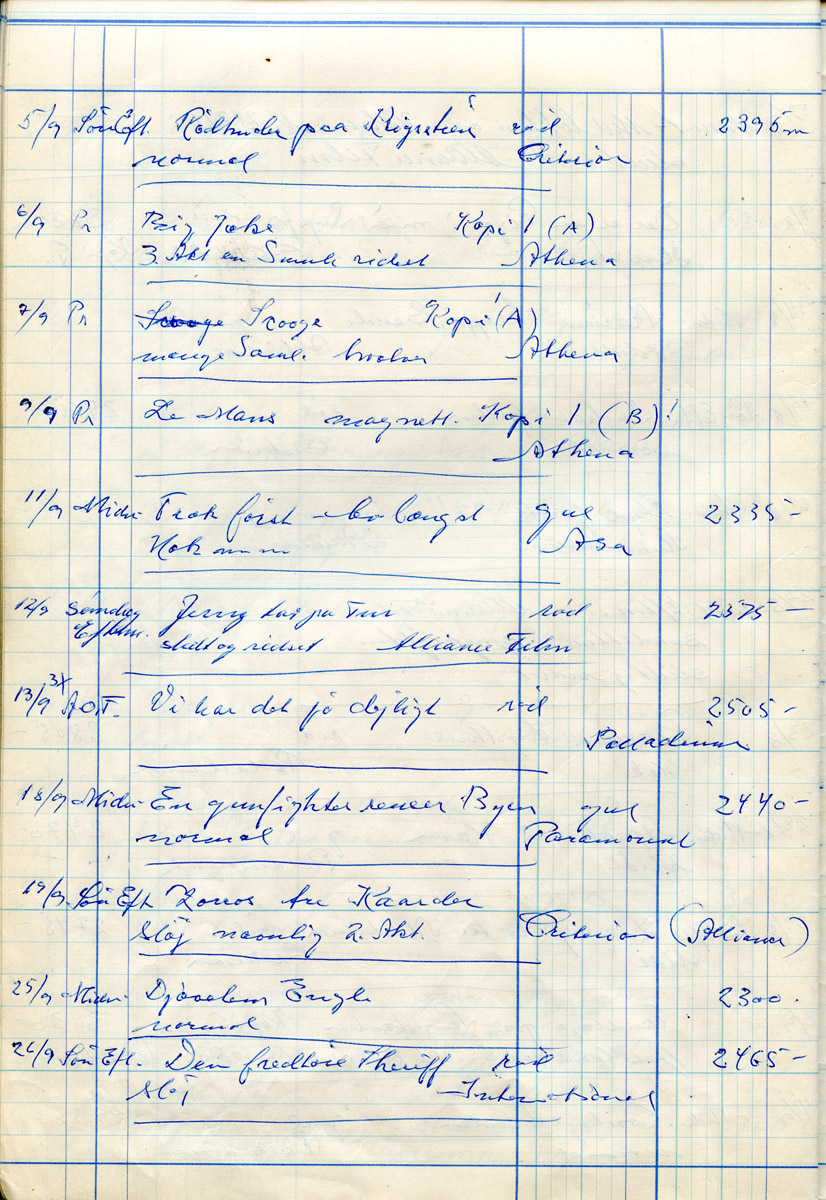 5/9 Sön Eft. Rödhuder paa Krigsstien röd 2395 m
normal Criterion
6/9 Pr Big Jake Kopi 1 (A)
3. Akt en Smule ridset Athena
7/9 Pr Scrooge Kopi 1 (A)
mange Saml. Athena
9/9 Pr Le Mans magnett. Kopi 1 (B)!
Athena
11/9 Midn. Træk først - lev længst gul 2335-
Asa
12/9 Søndag Jerry paa Tur röd 2575-
Efterm. slidt og ridset Alliance Film
13/9 3x A.O.F. Vi har det jo dejligt röd 2505-
Palladium
18/9 Midn. En gunfighter renser Byen gul 2440-
normal Paramount
19/9 Sön Eft Zorros tre Kaarder
Støj navnlig 2. Akt. Criterion (Alliance)
25/9 Midn. Djævelens Engle 2300.
normal
26/9 Sön Eft. Den fredløse Sheriff röd 2465-
Støj International